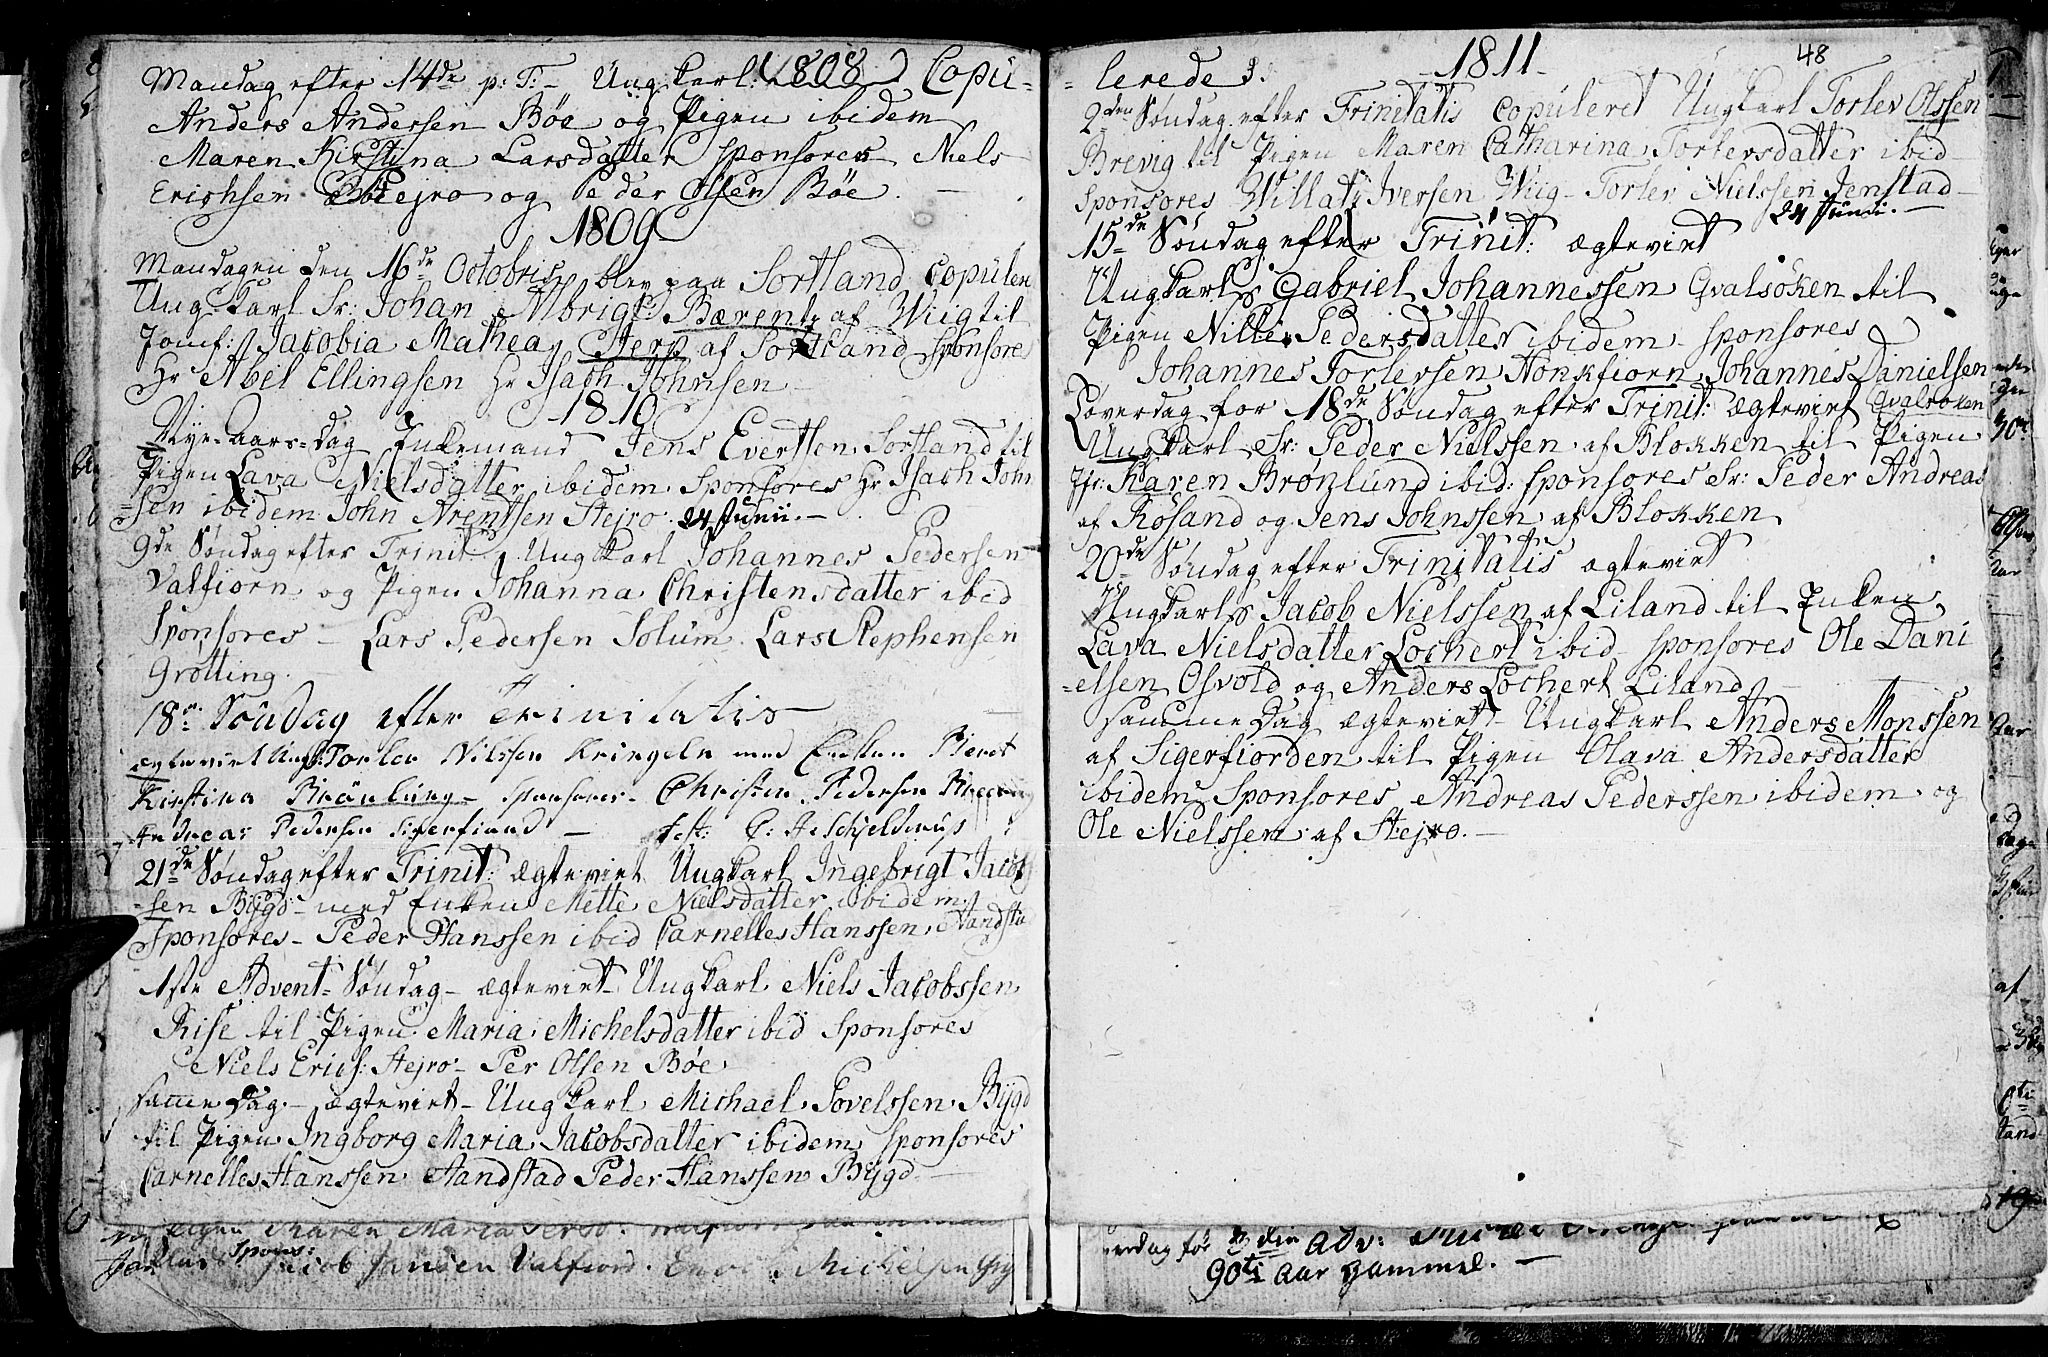 1808 Copu-
Mandag efter 14de p: T: - Ung Karl:
Anders Andersen Bøe og Pigen ibidem
Maren Kirstina Larsdatter sponsores Niels
Erichsen Stejro og Peder Olsen Bøe.
1809
Mandagen den 16de Octobris blev paa Sortland copuleret
Ung-Karl Sr: Johan Albrigt Bærent af Wiig til
Jomf: Jacobia Mathea af Sortland sponsores
Hr Abel Ellingsen Hr Isach Johnsen
1810
Nye-Aars-Dag Enkemand Jens Evertsen Sortland til
Pigen Lava Nielsdatter ibidem Sponsores Hr Isach John-
-sen ibidem John Arentsen Stejro 24 Junii. -
9de Søndag efter Trinit: Ung Karl Johannes Pedersen
Valfiorn og Pigen Johanna Christensdatter ibid
Sponsores - Lars Pedersen Solum Lars Stephensen
Grotting.
18de Søndag efter Trinitatis
ægteviet Ungk: Torler Nilssen Kringeln med Enken Beret
Kirstina Brönlung - sponsores - Christen Pedersen
Andreas Pedersen Sigerfiord - test: C: A: Schjelderup
21de Søndag efter Trinit: ægteviet Ungkarl Ingebrigt Jacob
-sen Bygd - med Enken Mette Nielsdatter ibidem
Sponsores - Peder Hanssen ibid Carnelles Hanssen Aandsta
1ste Advent-Søndag - ægteviet Ungkarl Niels Jacobssen
Rise til Pigen Maria Michelsdatter ibid Sponsores
Niels Erics: Stejro - Per Olsen Bøe
samme Dag - ægteviet - Ungkarl Michael Povelssen Bygd
til Pigen Ingborg Maria Jacobsdatter ibidem sponsores
Carnelles Hanssen Aandstad Peder Hanssen Bygd
Pigen Maren Maria
Spons: Jacob Jansen Valfiord. Michelsen
48
-lerede 1811
2den Søndag efter Trinitatis copuleret Ungkarl Torlev Olssen
Brevig til Pigen Maren Catharina Torlersdatter ibid
sponsores Willats Iversen Wiig - Torler Nielssen Jenstad
24 Junii. -
15de Søndag efter Trinit: ægteviet
Ungkarl Gabriel Johannessen Qvalsøken til
Pigen Nille Pedersdatter ibidem - sponsores
Johannes Torlersen Honkfiorn Johannes Danielsen
Qvalsøken
Løverdag for 18de Søndag efter Trinit: ægteviet
Ungkarl Sr: Peder Nielssen af Blokken til Pigen
Jfr: Karen Brønlund ibid: sponsores Sr: Peder Andreas
af Røsand og Jens Johnssen af Blokken
20de Søndag efter Trinitatis ægteviet
Ungkarl Jacob Nielssen af Liland til Enken
Lava Nielsdatter Lochert ibid sponsores Ole Dani
-elsen Osvold og Anders Lochert Liland
samme Dag ægteviet - Ungkarl Anders Monssen
af Sigerfiorden til Pigen Olava Andersdatter
ibidem Sponsores Andreas Pederssen ibidem og
Ole Nielssen af Stejro. -
Adv:
90ti Aar Gammel. -